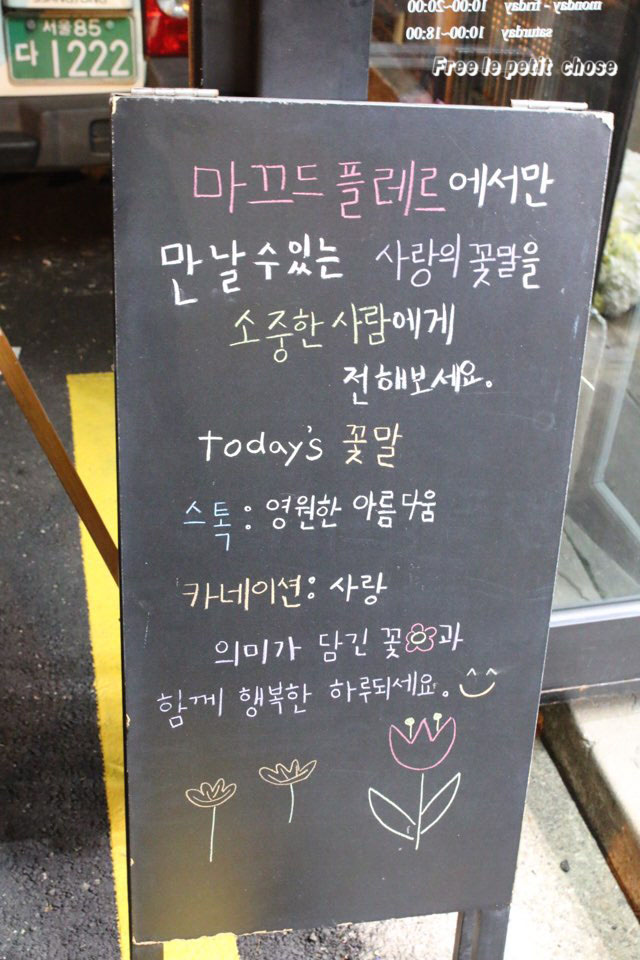 서울85
다 1222
monday - friday 10:00~20:00
saturday 10:00~18:00
Free le petit chose
마끄드 플레르에서만
만날 수 있는 사랑의 꽃말을
소중한 사람에게
전해보세요.
today's 꽃말
스톡 : 영원한 아름다움
카네이션 : 사랑
의미가 담긴 꽃과
함께 행복한 하루되세요. ^^